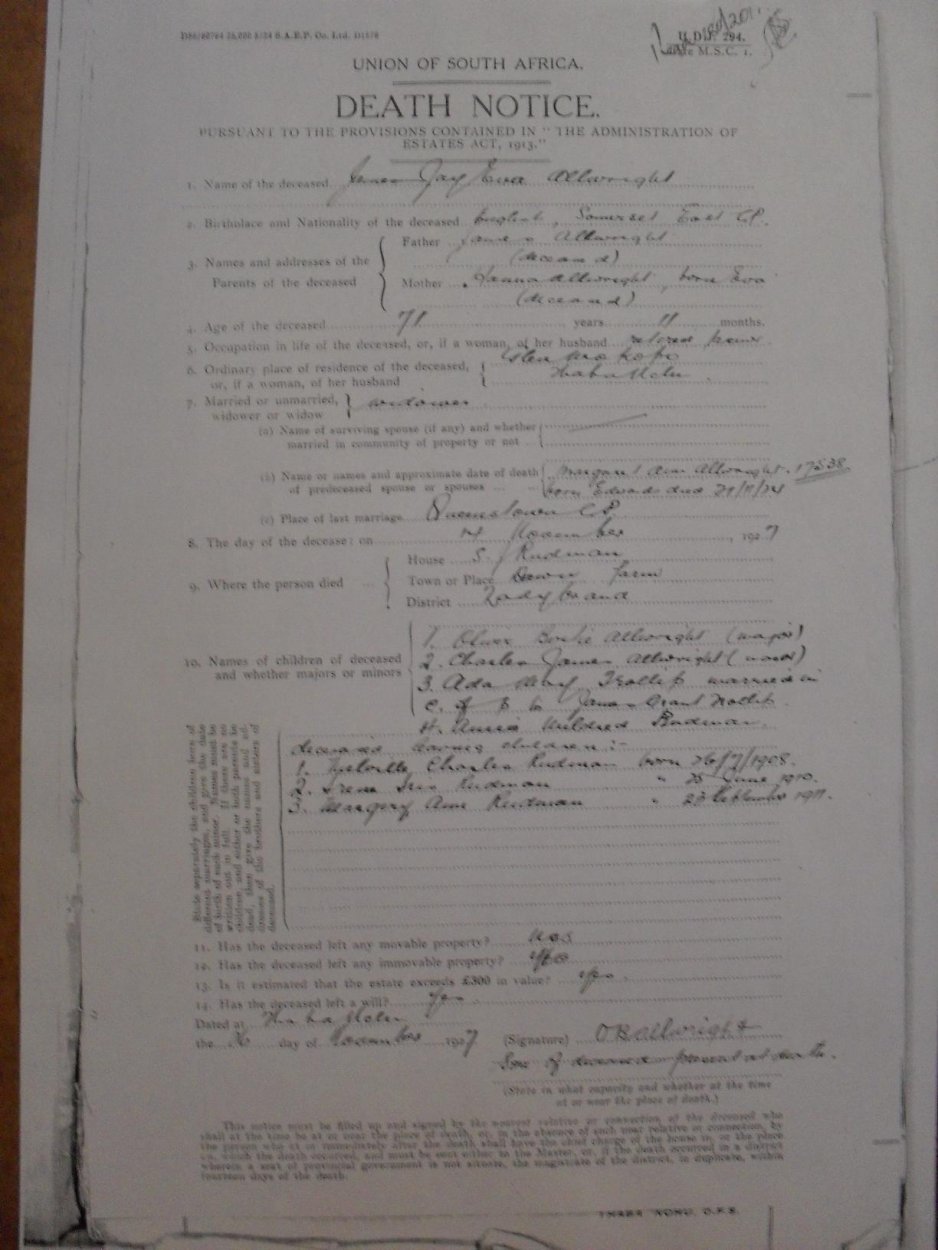 D88/60764 25,000 8/24 S.A.E.P. Co. Ltd. D1578
U.D.F. 294.
M.S.C. 1.
UNION OF SOUTH AFRICA.
DEATH NOTICE.
PURSUANT TO THE PROVISIONS CONTAINED IN "THE ADMINISTRATION OF
ESTATES ACT, 1913."
1. Name of the deceased James Jay Eva Allwright
2. Birthplace and Nationality of the deceased English, Somerset East C.P.
3. Names and addresses of the Parents of the deceased
Father James Allwright
(deceased)
Mother Hanna Allwright, born Eva
(deceased)
4. Age of the deceased 71 years 11 months.
5. Occupation in life of the deceased, or, if a woman, of her husband retired farmer
6. Ordinary place of residence of the deceased,
or, if a woman, of her husband Thaba Nchu
7. Married or unmarried,
widower or widow widower
(a) Name of surviving spouse (if any) and whether
married in community of property or not
(b) Name or names and approximate date of death Margaret Ann Allwright. 17538
of predeceased spouse or spouses born Edwards died 21/11/24
(c) Place of last marriage Queenstown C.P.
8. The day of the decease: on November, 1927
9. Where the person died
House S. Rudman
Town or Place farm
District Ladybrand
10. Names of children of deceased
and whether majors or minors
1. Oliver Allwright (major)
2. Charles James Allwright (major)
3. Ada May Trollip married in
C. of P. to James Grant Trollip
4. Annie Mildred Rudman
deceased leaving children:-
1. Melville Charles Rudman born 26/7/1908.
2. Irene Iris Rudman " 25 June 1910.
3. Margery Ann Rudman " 23 September 1911.
State separately the children born of
different marriages, and give the date
of birth of each minor. Names must be
written out in full. If there are no
children, and either or both parents be
dead, then give the names and ad-
dresses of the brothers and sisters of
deceased.
11. Has the deceased left any movable property? Yes
12. Has the deceased left any immovable property? Yes
13. Is it estimated that the estate exceeds £300 in value? Yes.
14. Has the deceased left a will? Yes
Dated at Thaba Nchu
the day of November 1927 (Signature) O B Allwright
Son of deceased present at death.
(State in what capacity and whether at the time
at or near the place of death.)
This notice must be filled up and signed by the nearest relative or connection of the deceased who
shall at the time be at or near the place of death, or, in the absence of such near relative or connection, by
the person who at or immediately after the death shall have the chief charge of the house in, or the place
on, which the death occurred, and must be sent either to the Master, or, if the death occurred in a district
wherein a seat of provincial government is not situate, the magistrate of the district, in duplicate, within
fourteen days of the death.
THABA 'NCHU, O.F.S.